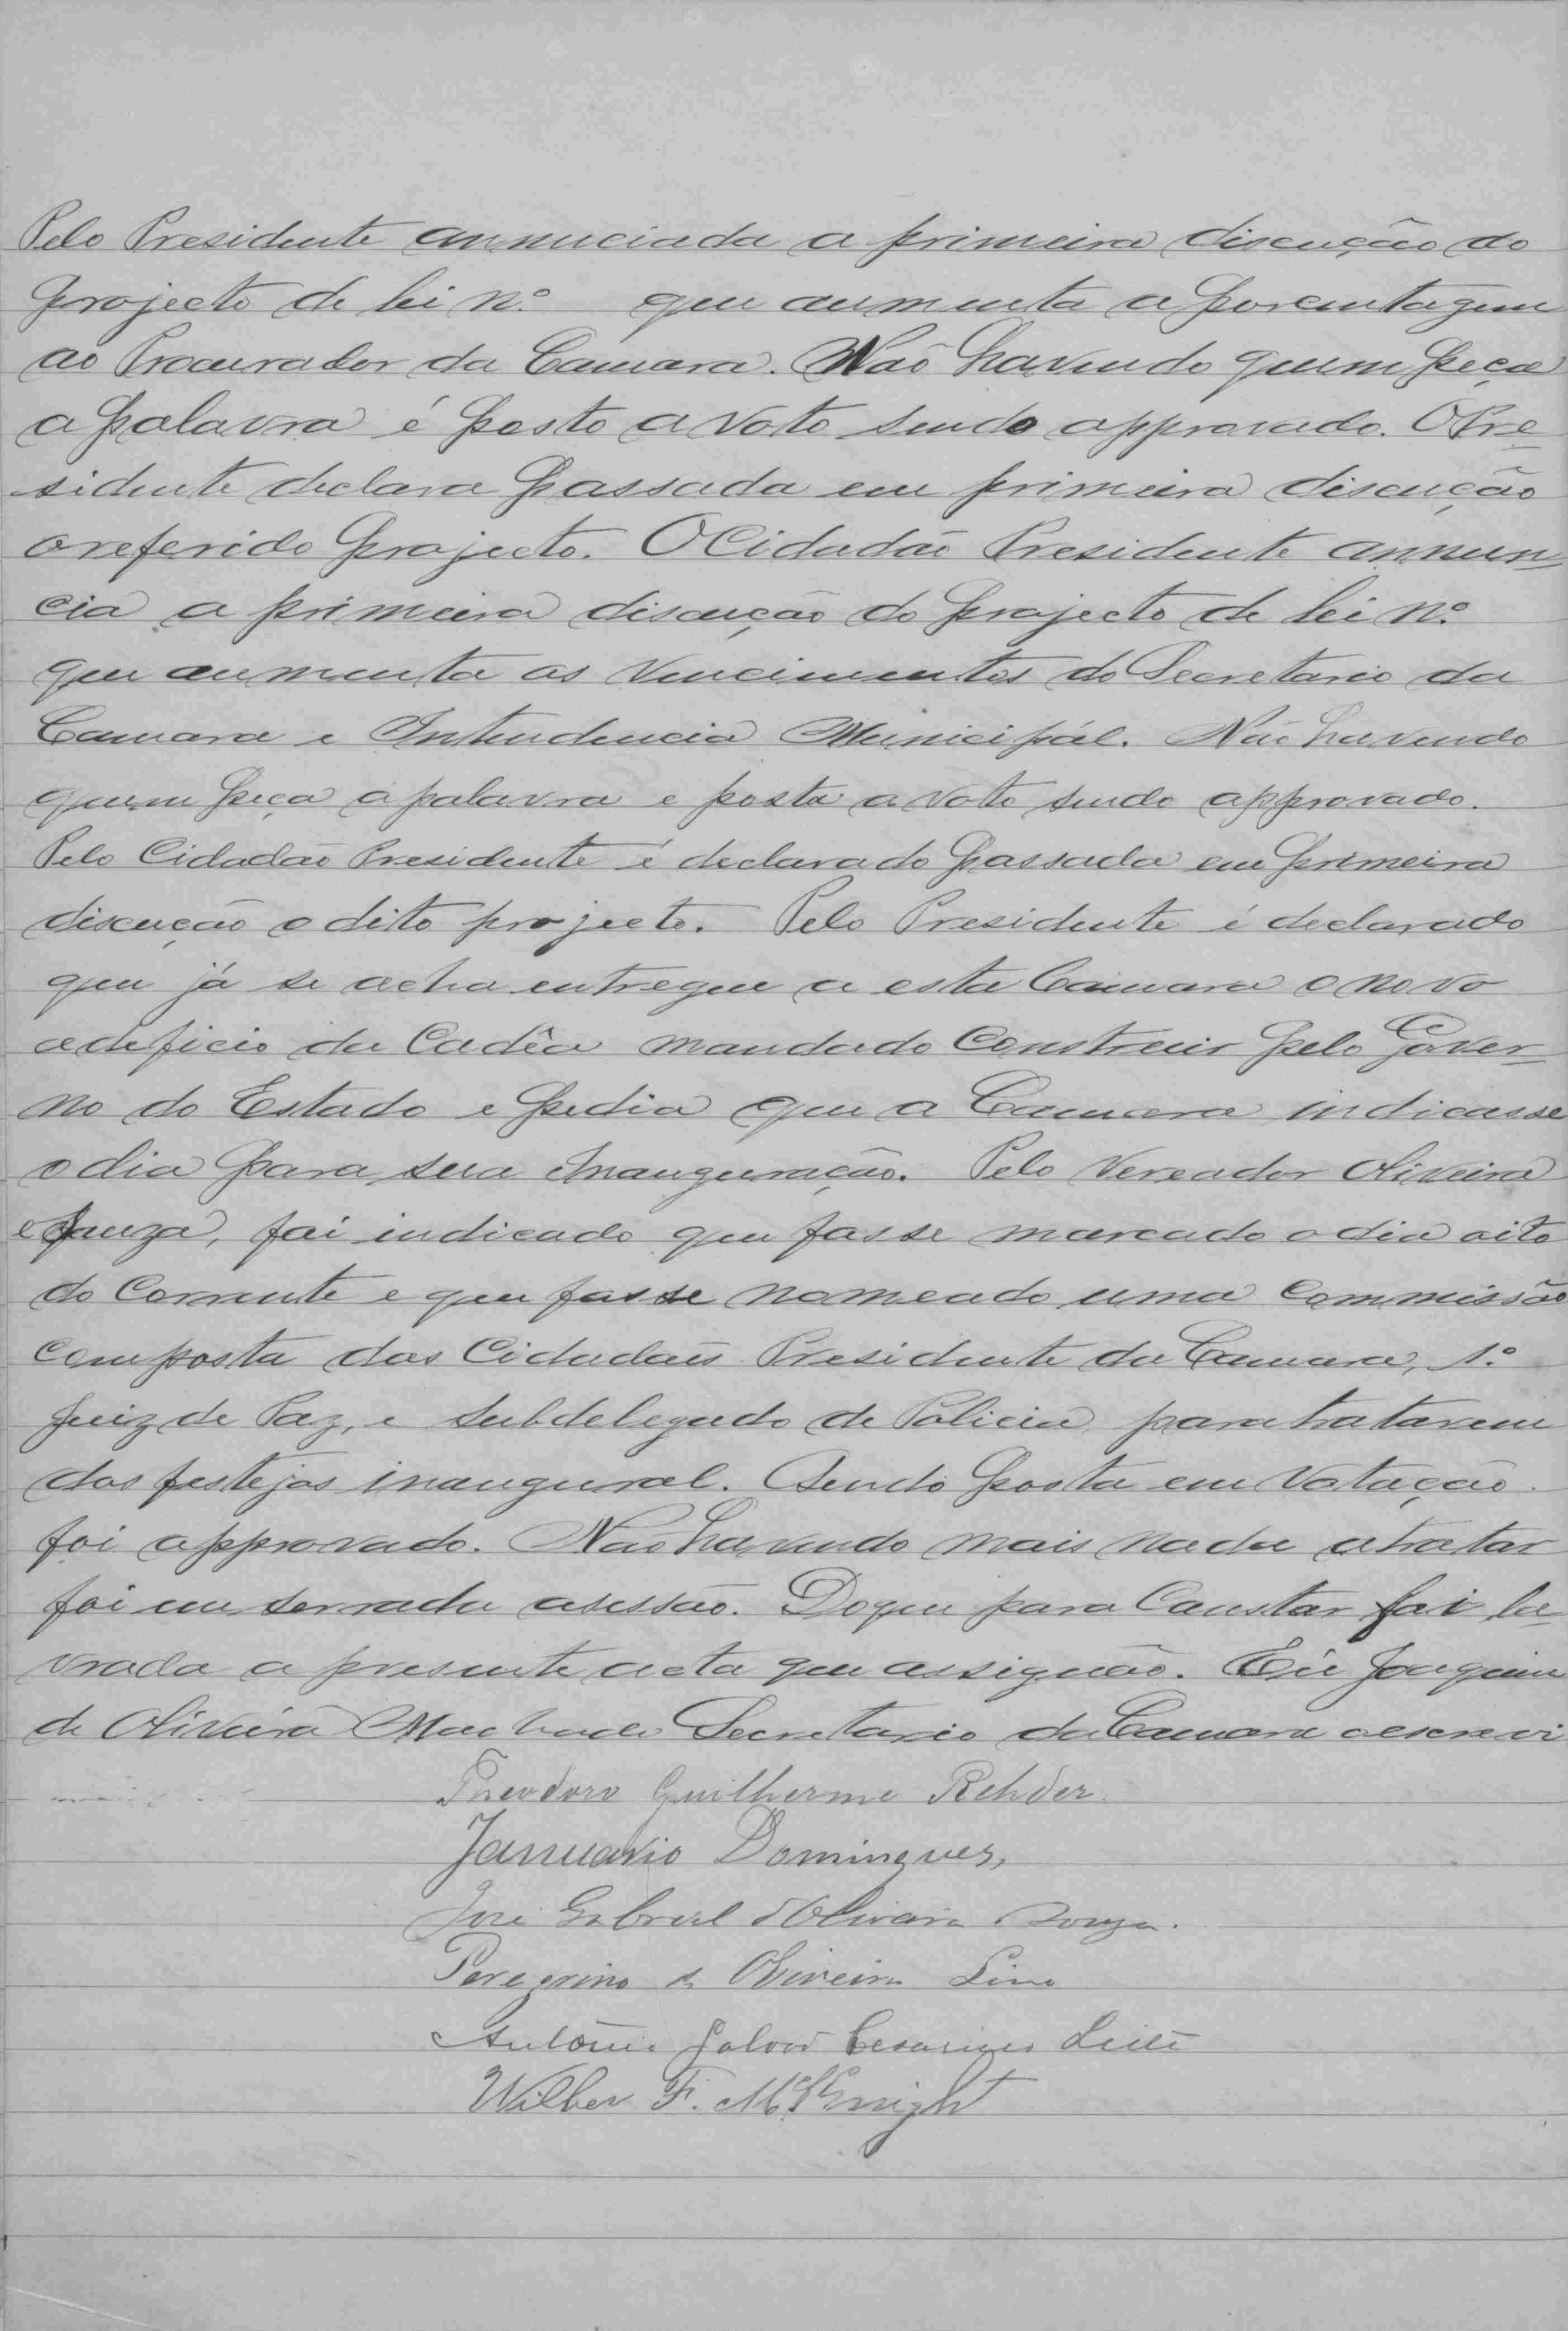 Pelo Presidente annuciada a primeira discução do
projecto de lei nº que aumenta a porcentagem
ao Procurador da Camara. Não havendo quem peça
a palavra é posto a voto sendo approvado. O Pre-
sidente declara passada em primeira discução
o referido projecto. O Cidadão Presidente annun-
cia a primeira discução do projecto de lei nº
que aumenta os vencimentos do Secretario da
Camara e Intendencia Municipál. Não havendo
quem peça a palavra e posta a voto sendo approvado.
Pelo Cidadão Presidente é declarado passada em primeira
discução o dito projecto. Pelo Presidente é declarado
que já se acha entregue a esta Camara o novo
edeficio da Cadêa mandado construir pelo Gover-
no do Estado e pedia que a Camara indicasse
o dia para sua Inauguração. Pelo Vereador Oliveira
e Souza, foi indicado que fosse marcado o dia oito
do Corrente e que fosse nomeado uma Commissão
composta dos Cidadãos Presidente da Camara, 1º
Juiz de Paz, e Subdelegado de Policia, para tratarem
dos festejos inaugural. Sendo posta em votação
foi approvado. Não havendo mais nada a tratar
foi enserrada a sessão. Do que para Constar foi la-
vrada a presente acta que assignão. Eu Joaquim
de Oliveira Machado Secretario da Camara o escrevi
Theodoro Guilherme Rehder.
Januario Domingues,
José Gabriel d'Oliveira Souza.
Peregrino de Oliveira Lino
Antonio Galvão Cesarino Leite
Wilber F. McKnight